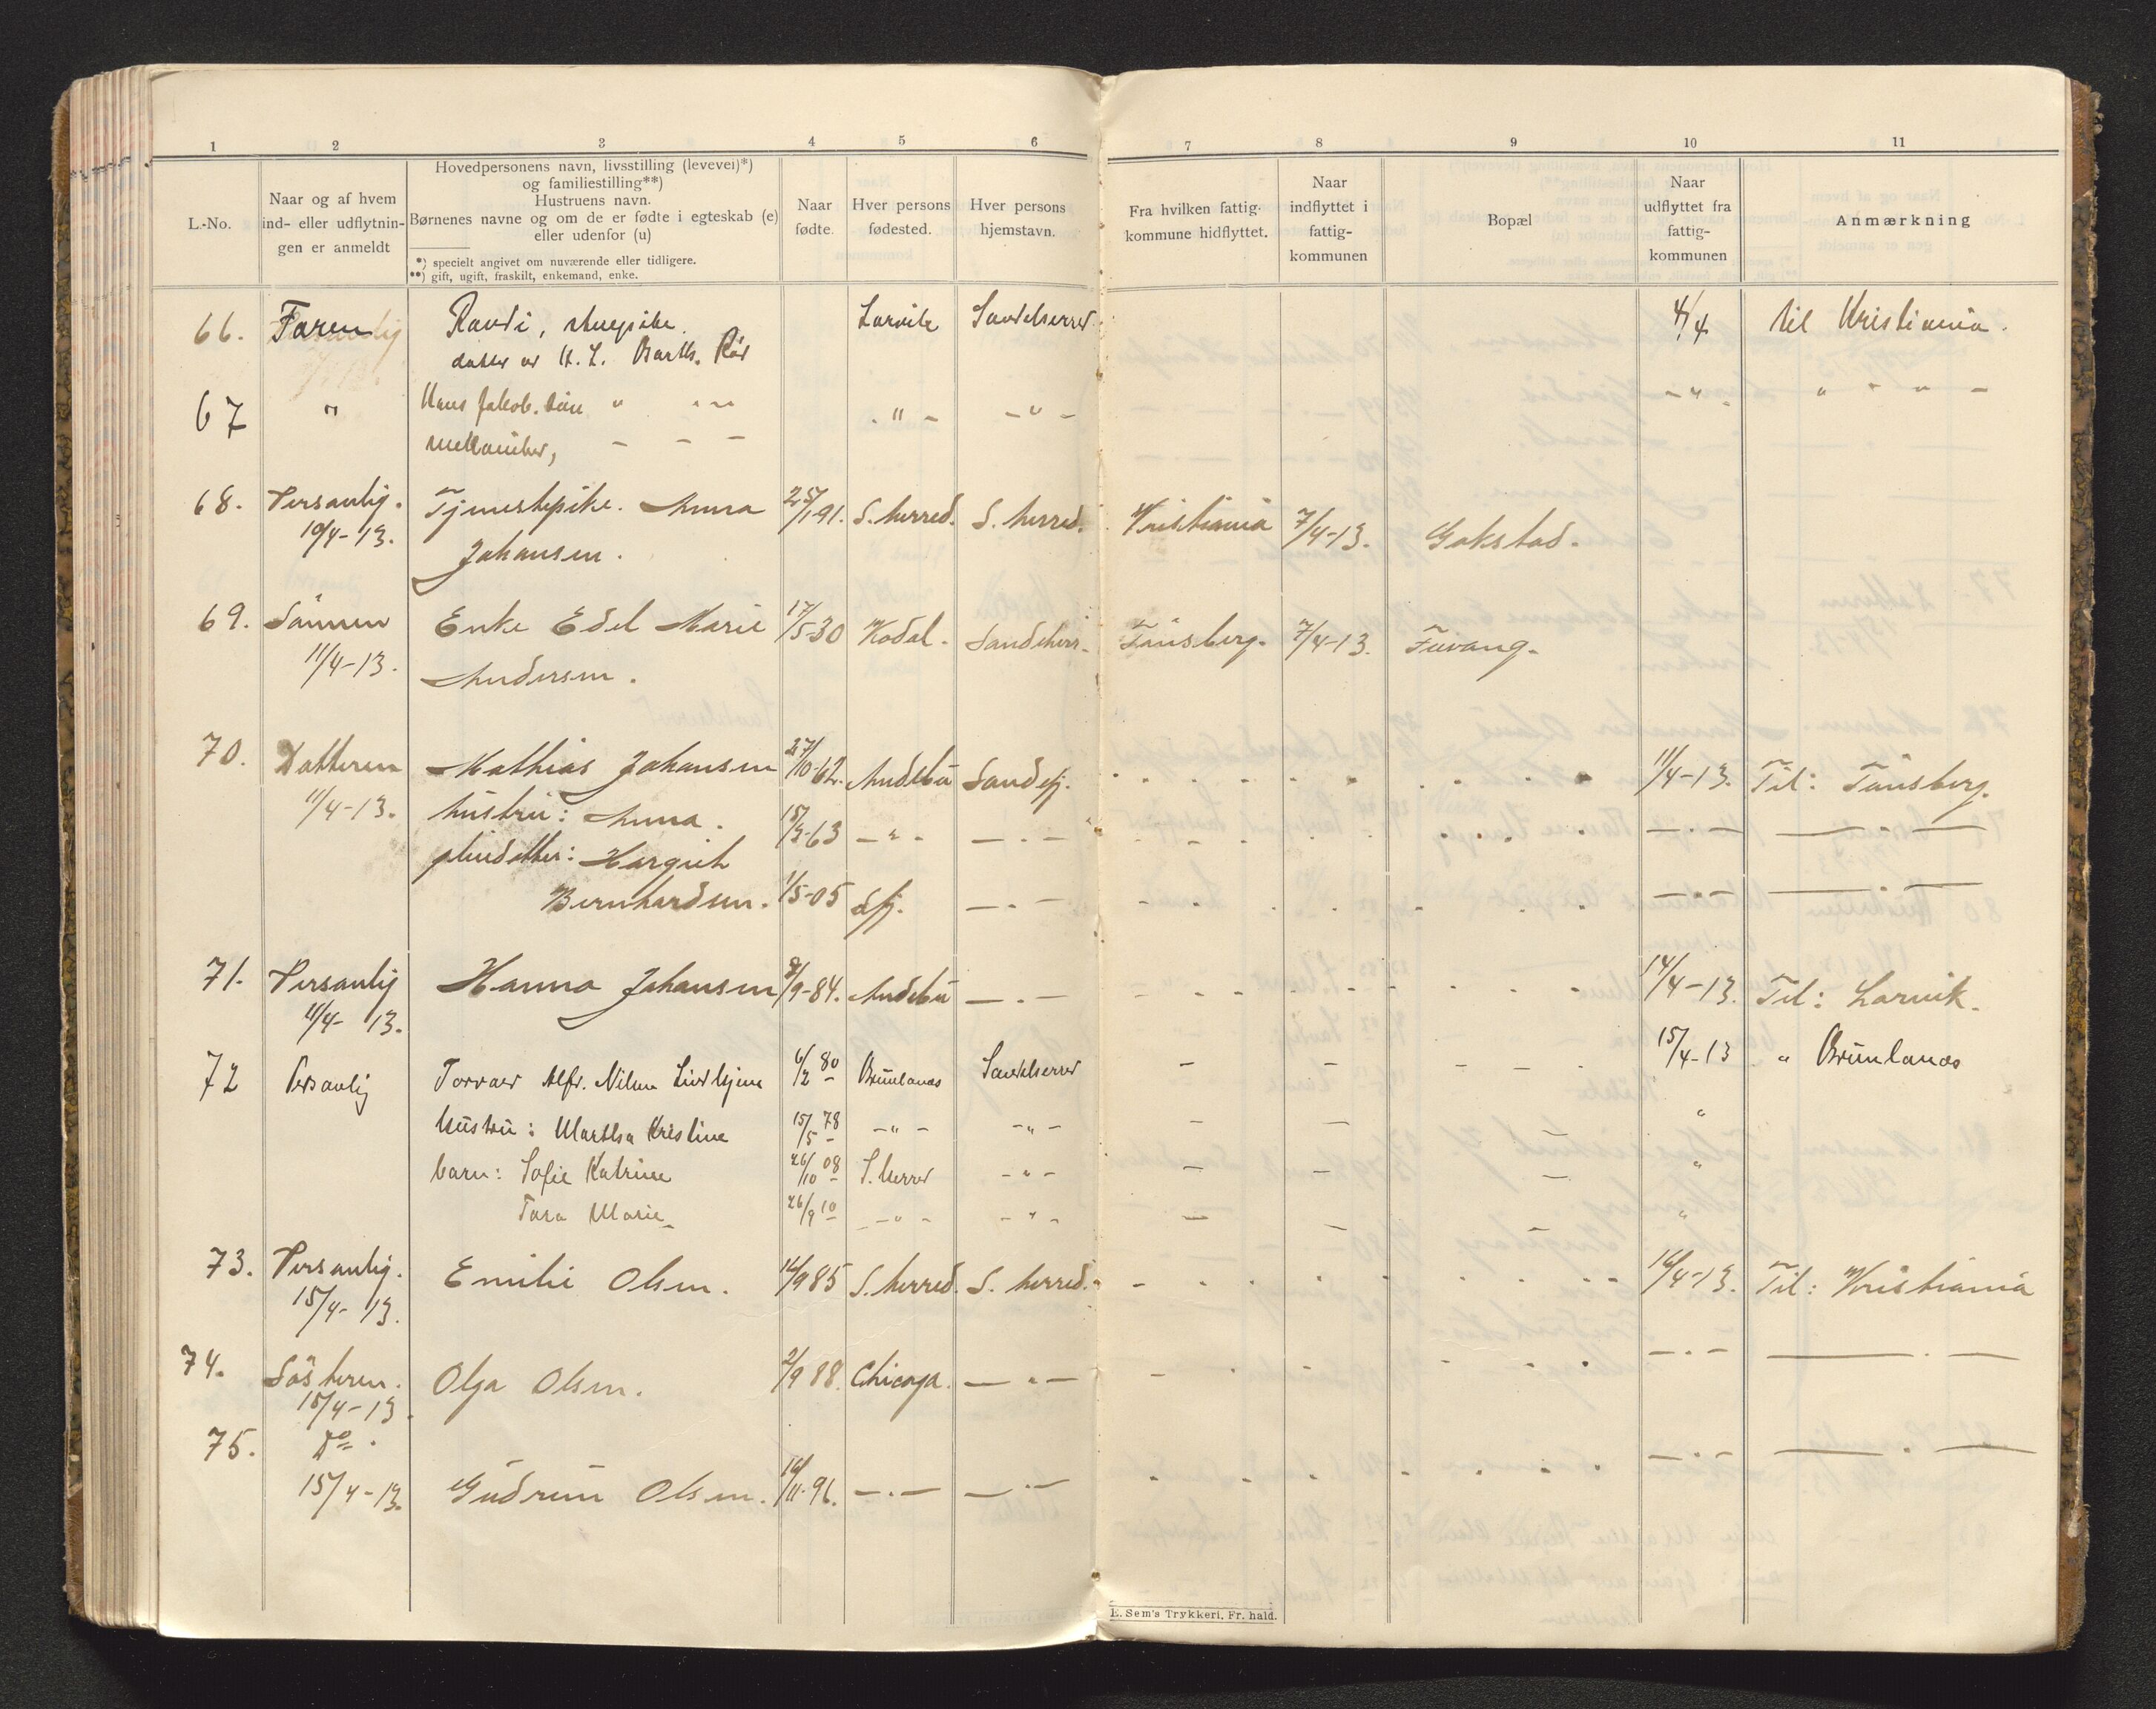 1 2 3 4 5 6 7 8 9 10 11
L.-No.
Naar og af hvem
ind- eller udflytnin-
gen er anmeldt
Hovedpersonens navn, livsstilling (levevei)*)
og familiestilling**)
Hustruens navn.
Børnenes navne og om de er fødte i egteskab (e)
eller udenfor (u)
*) specielt angivet om nuværende eller tidligere.
**) gift, ugift, fraskilt, enkemand, enke.
Naar
fødte.
Hver persons
fødested.
Hver persons
hjemstavn.
Fra hvilken fattig-
kommune hidflyttet.
Naar
indflyttet i
fattig-
kommunen
Bopæl
Naar
udflyttet fra
fattig-
kommunen
Anmærkning
66. Faren Randi, stuepike. Larvik Sandeherred. 4/4 til Kristiania.
datter av H. L. Barth.
67 " Hans Jakob. " " - " - - " - - " - " " " -
mekaniker, - - -
68. Personlig. Tjenestepike. Anna 25/1 91. S. herred. S. herred. Kristiania 7/4-13. Gokstad.
10/4-13. Johansen.
69. Sönnen Enke Edel Marie 17/5-30 Kodal. Sandeherr. Tönsberg. 7/4-13. Furvang.
11/4-13. Andersen.
70. Datteren Mathias Johansen 27/10-62. Andebu Sandefj. 11/4-13. Til: Tönsberg.
11/4-13. hustru: Anna. 63 - " - - " - - " - - " -
pleiedatter: Margit
Bernhardsen. 1/5-05 Sfj. - " - - " -
71. Personlig Hanna Johansen 9-84. Andebu - " - 14/4-13. Til: Larvik.
11/4-13.
72 Personlig Torvær Alfr. Nilsen Lindhjem 6/2 80 Brunlanes Sandeherred 15/4-13 " Brunlanes
hustru: Martha Kristine 15/5 78 - " - - " - "
barn: Sofie Katrine 26/10 08 S. herred - " - "
Tora Marie 26/9 10 - " - - " - "
73. Personlig. Emilie Olsen. 9 85 S. herred. S. herred. 16/4-13. Til: Kristiania
15/4-13.
74. Sösteren. Olga Olsen. 2/9 88. Chicago. - " - - " - - " -
15/4-13.
75. Do.
15/4-13. Gudrun Olsen. 16/11-96. - " - - " - - " - - " -
E. Sem's Trykkeri, Fr. hald.